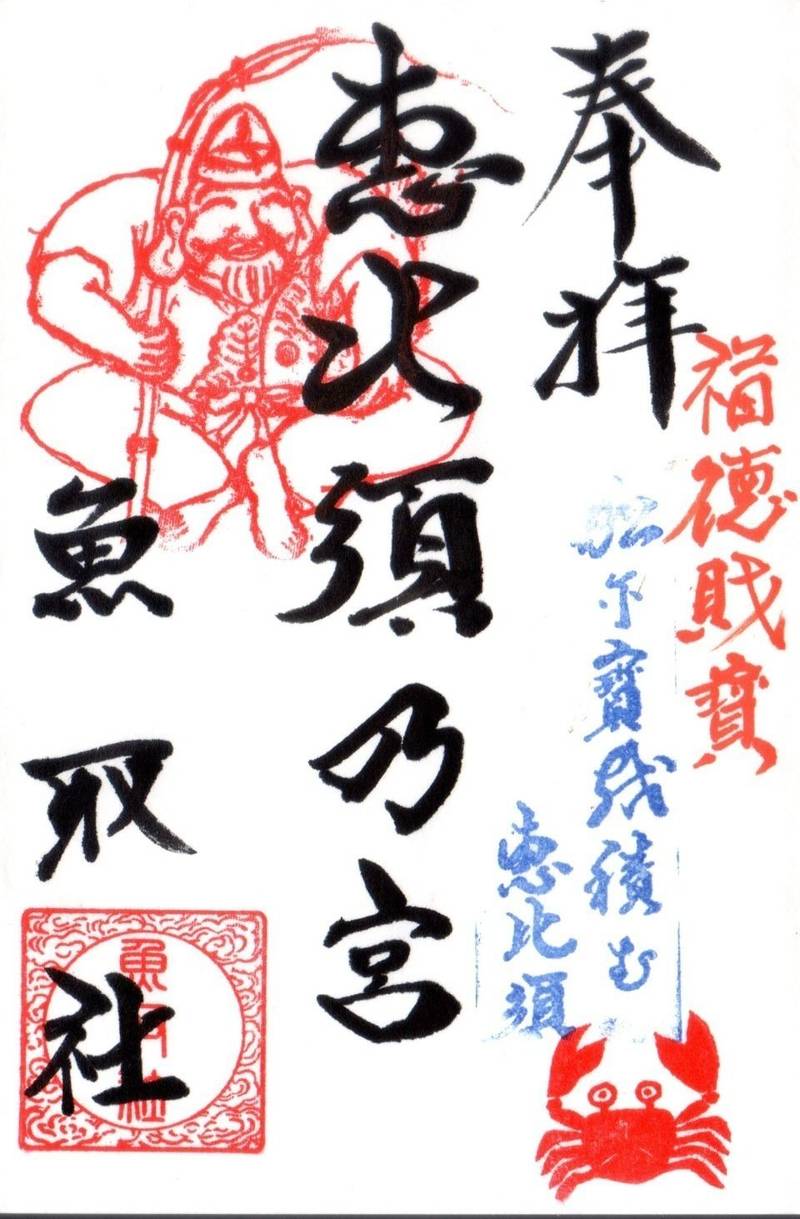 奉拝
福徳財寶
船尓寶哉積む
恵比須
恵比須乃宮
魚取社
魚取社